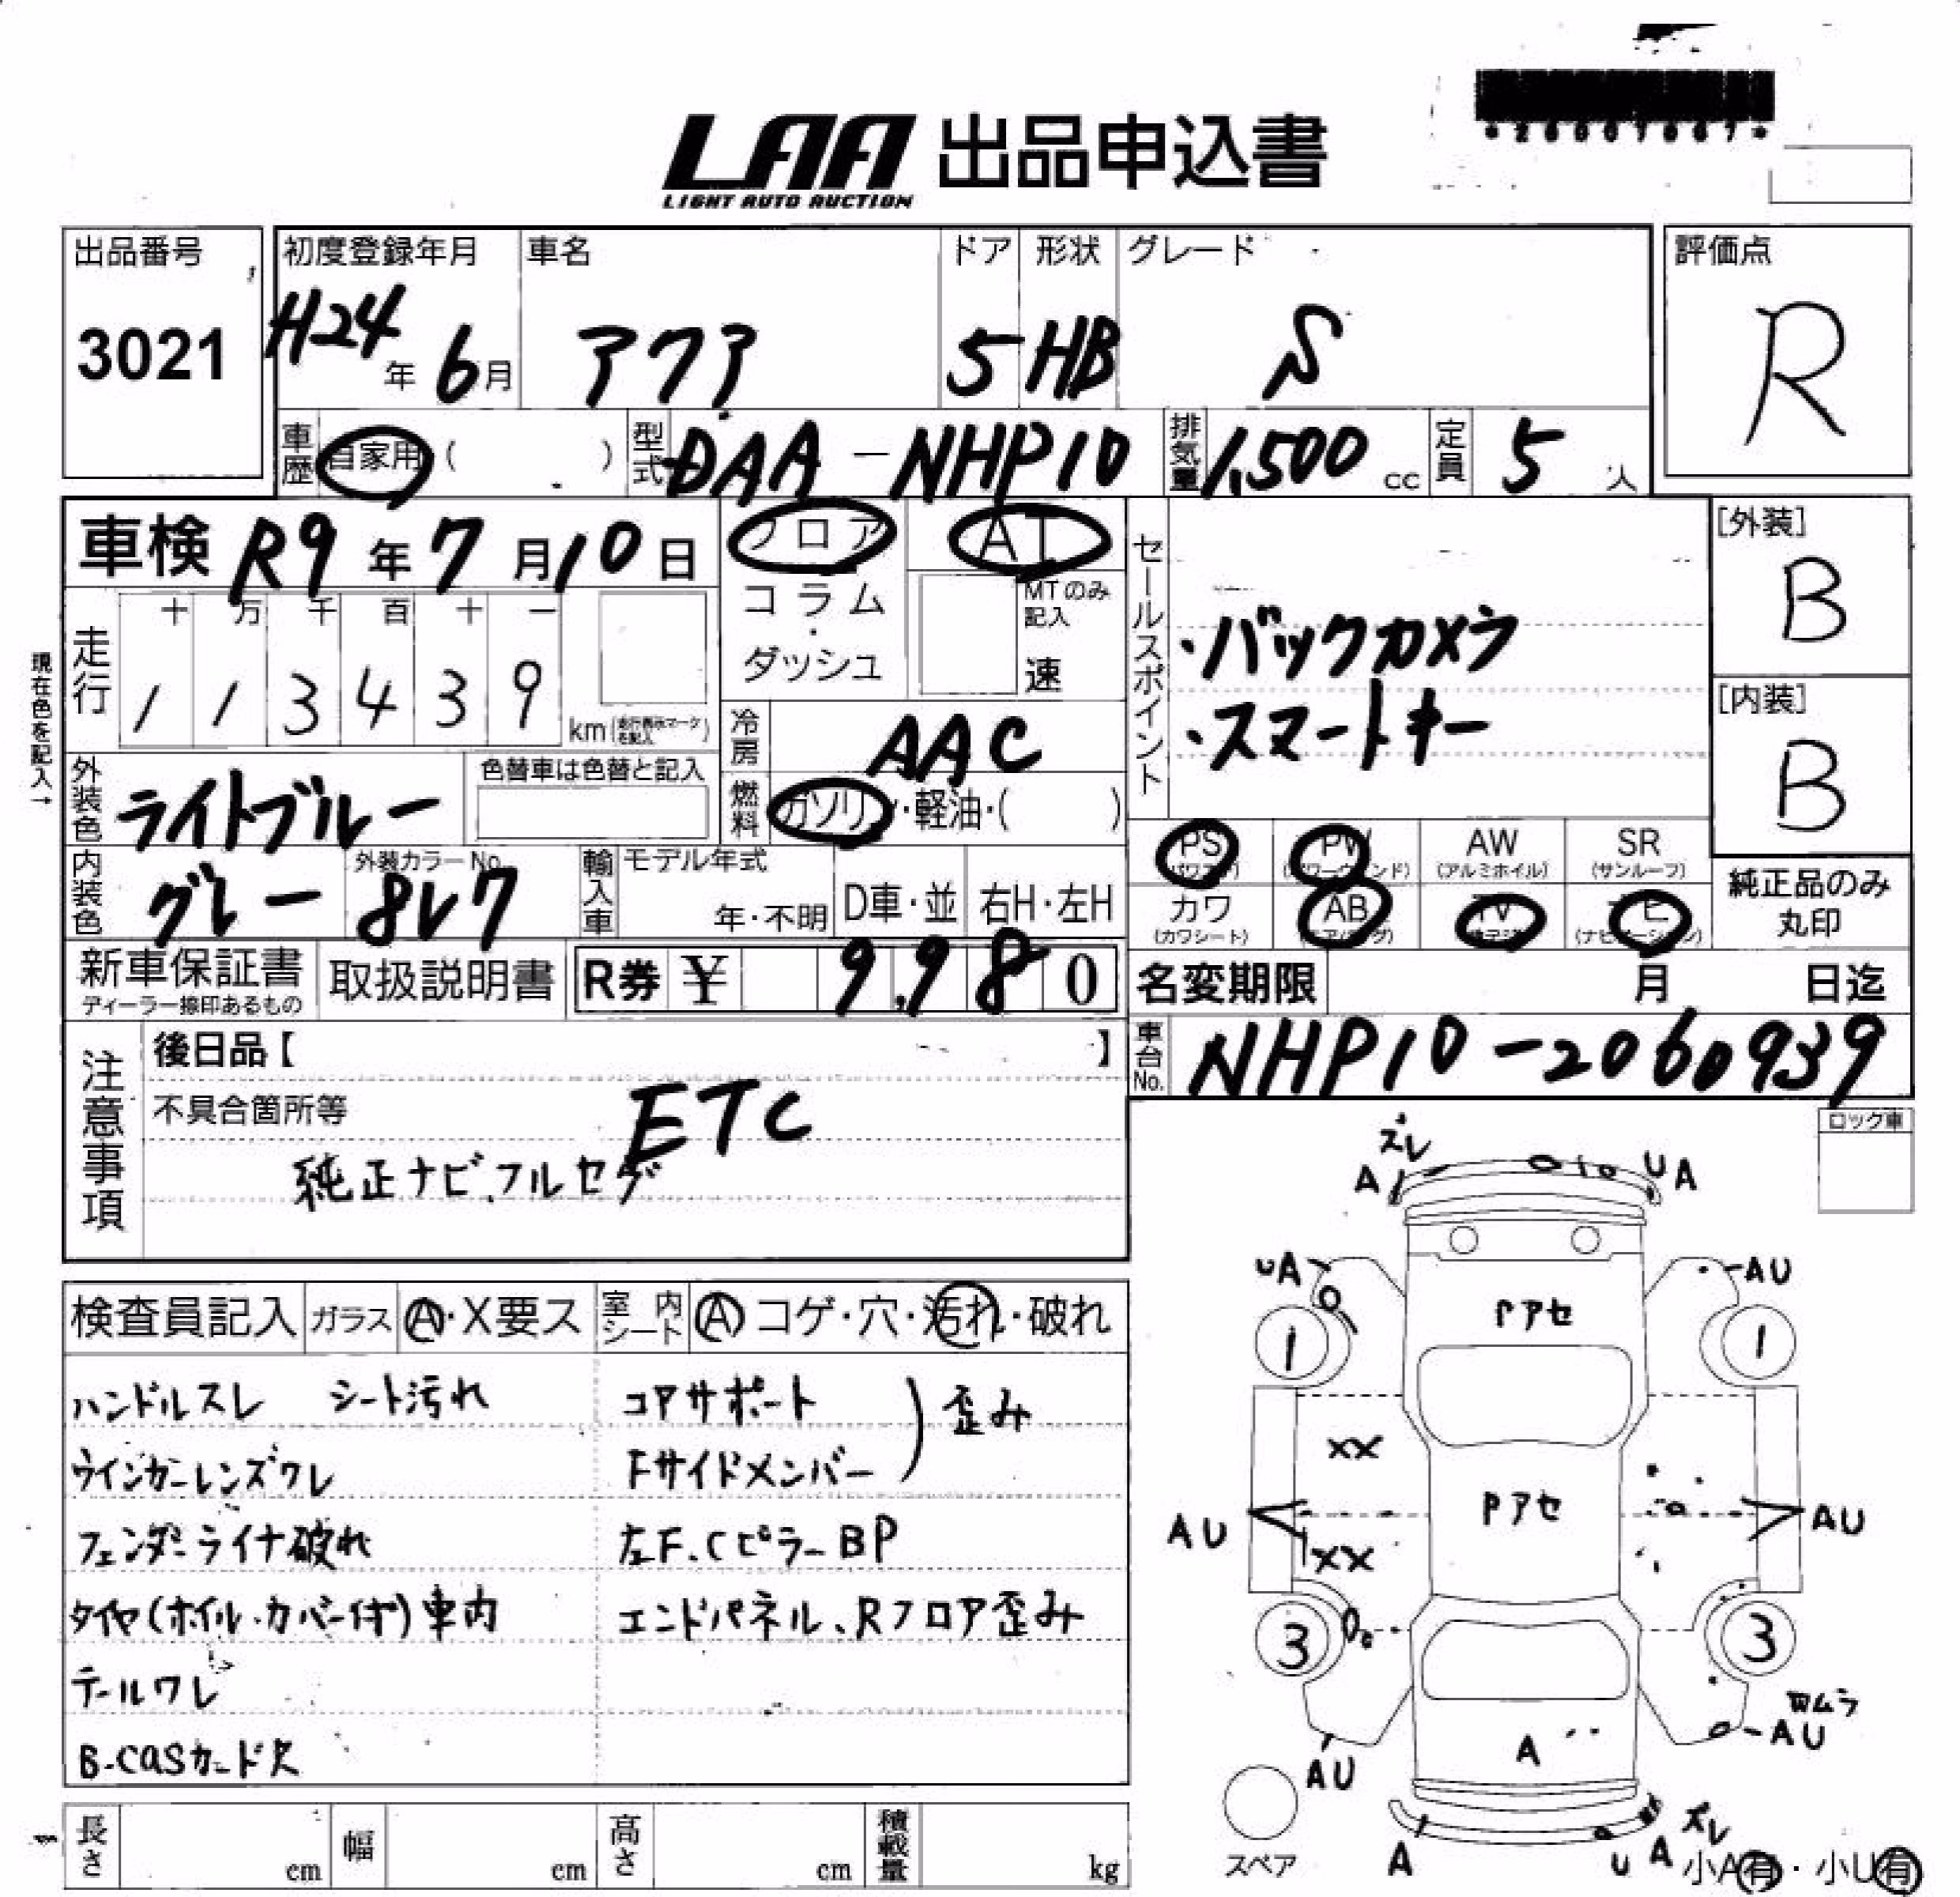 LAA 出品申込書
LIGHT AUTO AUCTION
出品番号
3021
初度登録年月
H24年 6月
車名
アクア
ドア
5
形状
HB
グレード
S
評価点
R
車歴 自家用 ( )
型式 DAA-NHP10
排気量 1,500 cc
定員 5 人
車検 R9年 7月 10日
フロア
コラム・ダッシュ
AT
MTのみ記入
速
セールスポイント
・バックカメラ
・スマートキー
[外装]
B
[内装]
B
現在色を記入→
走行
十 万 千 百 十 一
1 1 3 4 3 9
km (走行表示マークを記入)
冷房 AAC
外装色 ライトブルー
色替車は色替と記入
燃料 ガソリン・軽油・( )
内装色 グレー
外装カラーNo. 8V7
輸入車
モデル年式
年・不明
D車・並
右H・左H
PS (パワステ)
PW (パワーウィンド)
AW (アルミホイル)
SR (サンルーフ)
カワ (カワシート)
AB (エアバッグ)
TV
ナビ (ナビゲーション)
純正品のみ丸印
新車保証書
ディーラー捺印あるもの
取扱説明書
R券 ¥ 9,980
名変期限 月 日迄
車台No. NHP10-2060939
注意事項
後日品【 】
不具合箇所等
ETC
純正ナビ、フルセグ
ロック車
検査員記入
ガラス A・X要ス
室内シート A コゲ・穴・汚れ・破れ
ハンドルスレ シート汚れ
ウインカーレンズワレ
フェンダーライナ破れ
タイヤ(ホイル・カバー付)車内
テールワレ
B-CASカード欠
コアサポート
Fサイドメンバー
歪み
左F、CピラーBP
エンドパネル、Rフロア歪み
ズレ
A
UA
UA
AU
Pアセ
1
1
XX
Pアセ
AU
AU
XX
3
3
ムラ
AU
A
AU
ズレ
A
U A
スペア
小A有・小U有
長さ cm
幅 cm
高さ cm
積載量 kg